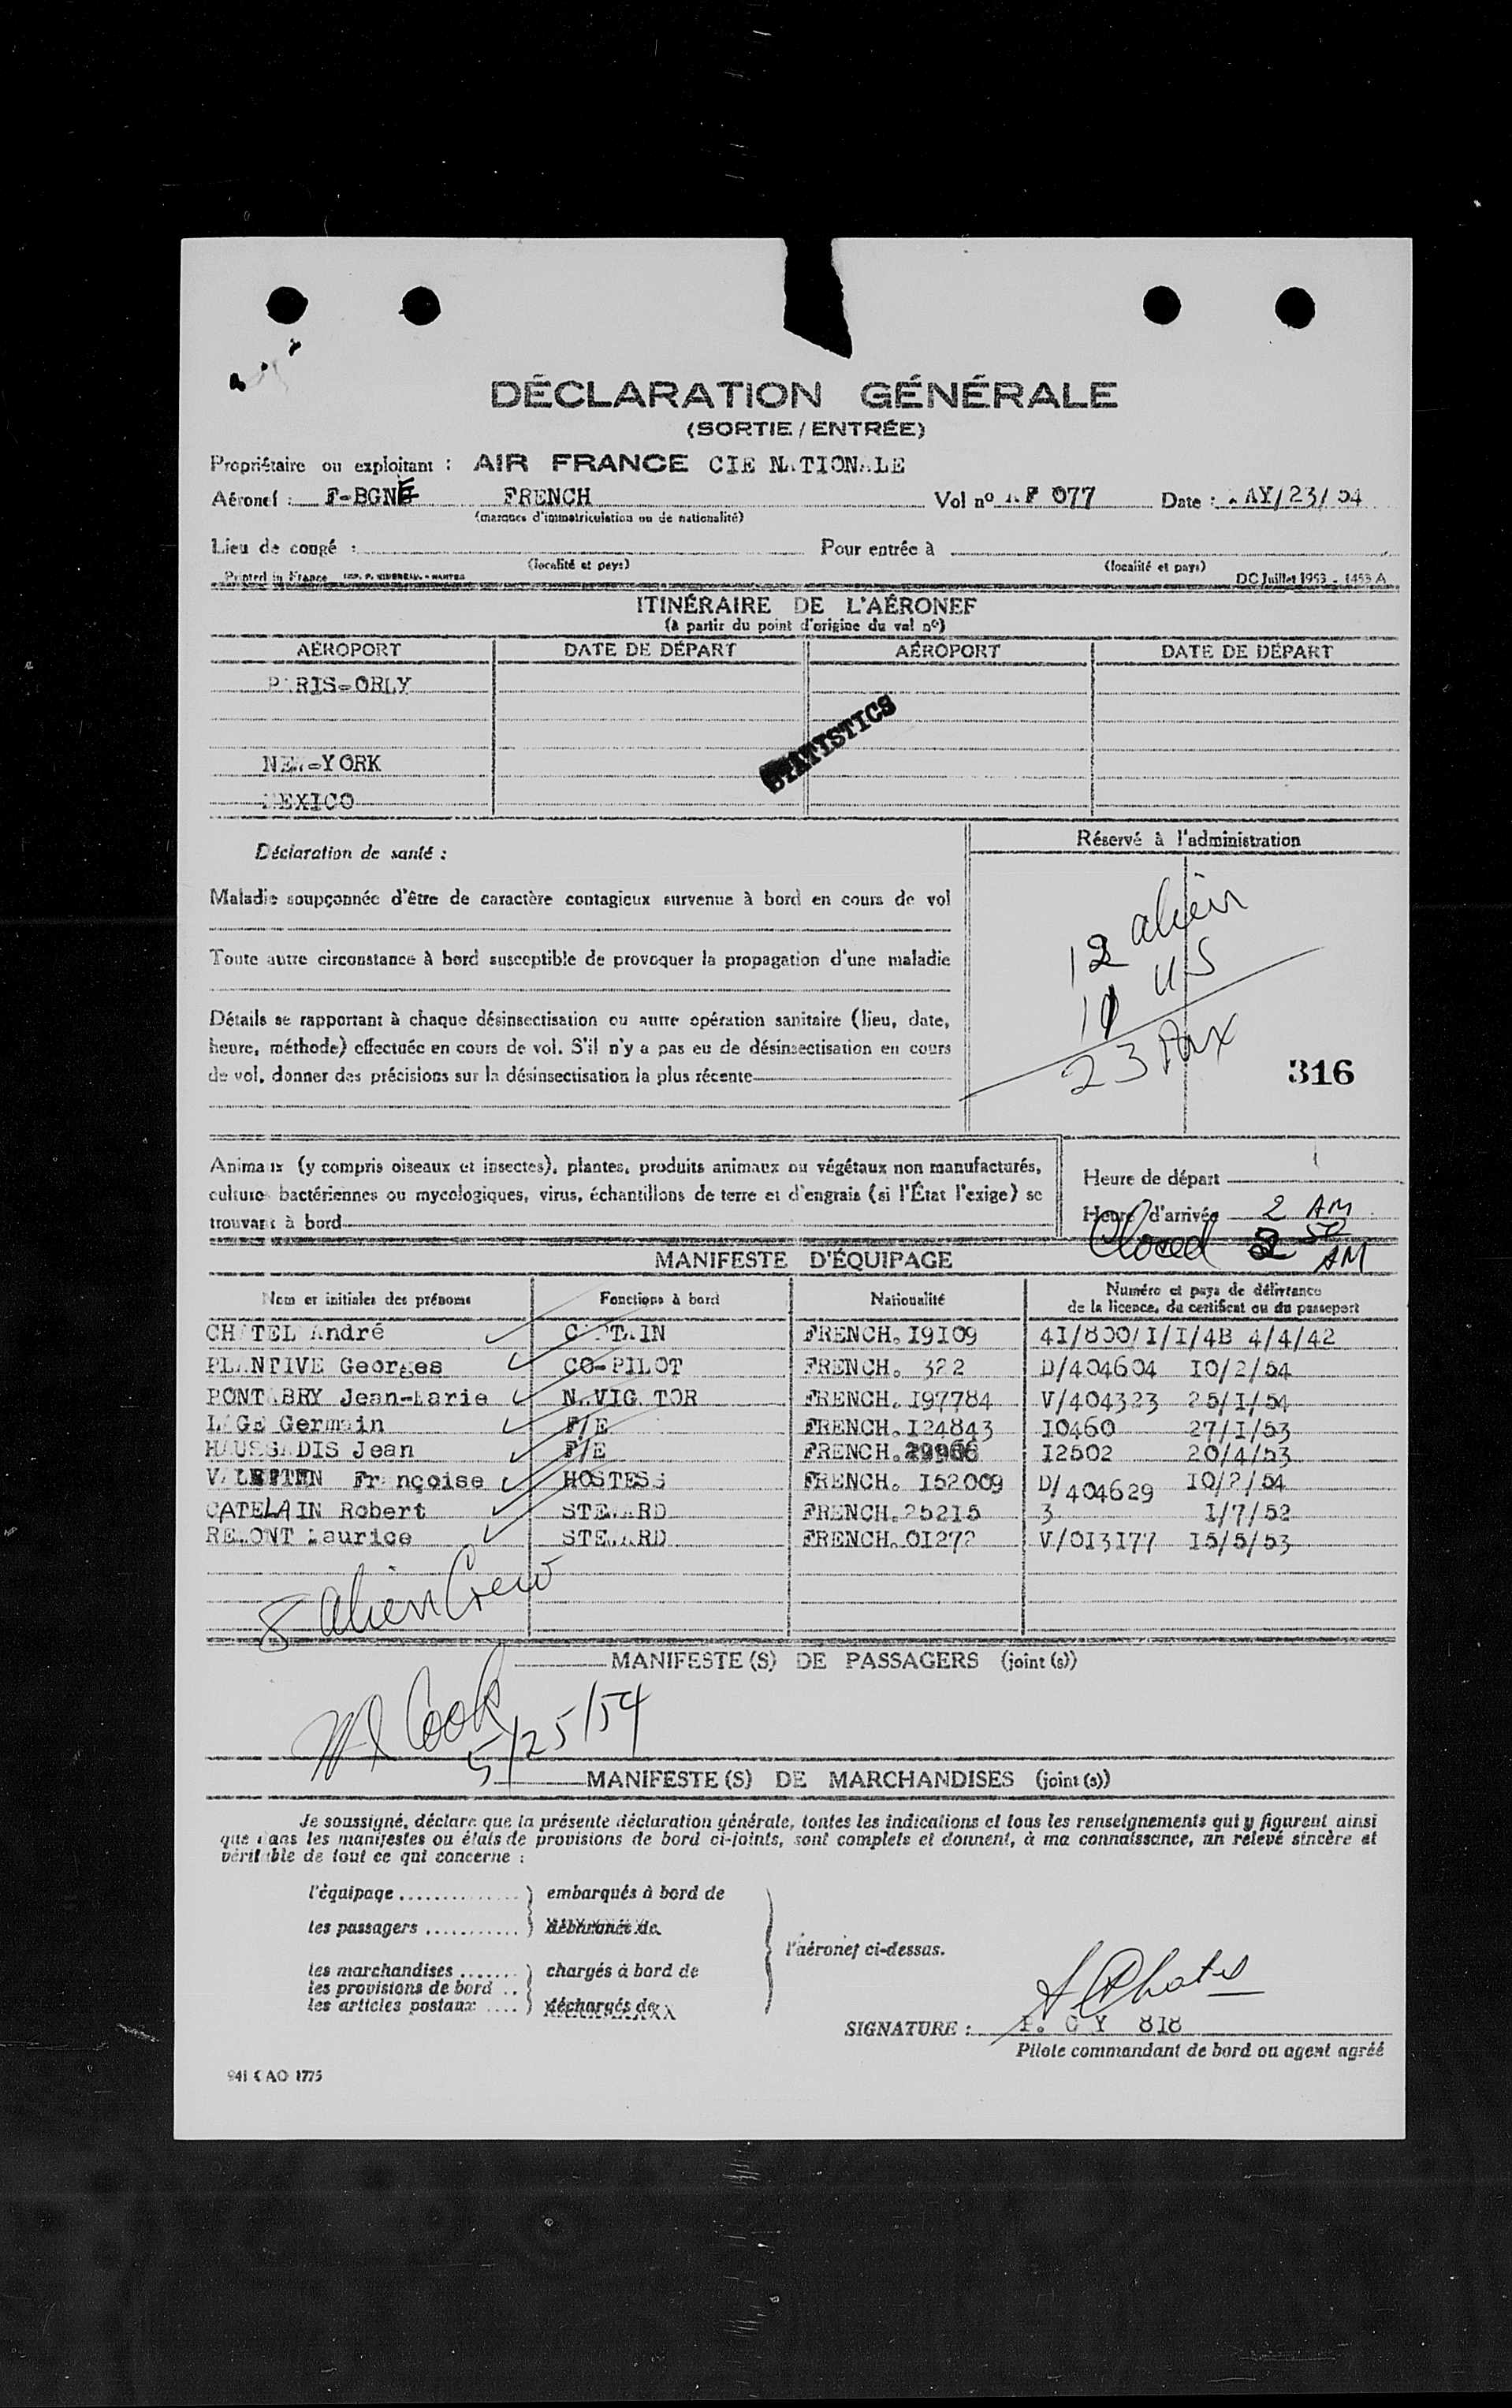 DÉCLARATION GÉNÉRALE
(SORTIE / ENTRÉE)
Propriétaire ou exploitant : AIR FRANCE CIE NATIONALE
Aéronef : F-BGNE FRENCH Vol nº AF 077 Date : MAY/23/54
(marques d'immatriculation ou de nationalité)
Lieu de congé : Pour entrée à
(localité et pays) (localité et pays)
Printed in France DC Juillet 1953 - 1453 A
ITINÉRAIRE DE L'AÉRONEF
(à partir du point d'origine du vol nº)
AÉROPORT DATE DE DÉPART AÉROPORT DATE DE DÉPART
PARIS-ORLY
STATISTICS
NEW-YORK
MEXICO
Déclaration de santé :
Réservé à l'administration
Maladie soupçonnée d'être de caractère contagieux survenue à bord en cours de vol
Toute autre circonstance à bord susceptible de provoquer la propagation d'une maladie
Détails se rapportant à chaque désinsectisation ou autre opération sanitaire (lieu, date,
heure, méthode) effectuée en cours de vol. S'il n'y a pas eu de désinsectisation en cours
de vol, donner des précisions sur la désinsectisation la plus récente
12 alien
11 US
23 Pax
316
Animaux (y compris oiseaux et insectes), plantes, produits animaux ou végétaux non manufacturés,
cultures bactériennes ou mycologiques, virus, échantillons de terre et d'engrais (si l'État l'exige) se
trouvant à bord
Heure de départ
Heure d'arrivée 2 AM
Closed 2 50 AM
MANIFESTE D'ÉQUIPAGE
Nom et initiales des prénoms Fonctions à bord Nationalité Numéro et pays de délivrance
de la licence, du certificat ou du passeport
CHATEL André CAPTAIN FRENCH. I9I09 4I/800/I/I/4B 4/4/42
PLANTIVE Georges CO-PILOT FRENCH. 322 D/404604 I0/2/54
PONTABRY Jean-Marie NAVIGATOR FRENCH. I97784 V/404323 25/I/54
LAGE Germain F/E FRENCH. I24843 I0460 27/I/53
HAUSSADIS Jean F/E FRENCH. I2502 20/4/53
Françoise HOSTESS FRENCH. I52009 D/404629 I0/2/54
CATELAIN Robert STEWARD FRENCH. 252I5 3 I/7/52
REMONT Maurice STEWARD FRENCH. 0I272 V/0I3I77 I5/5/53
8 alien Crew
MANIFESTE (S) DE PASSAGERS (joint (s))
Cook
5/25/54
MANIFESTE (S) DE MARCHANDISES (joint (s))
Je soussigné, déclare que la présente déclaration générale, toutes les indications et tous les renseignements qui y figurent ainsi
que dans les manifestes ou états de provisions de bord ci-joints, sont complets et donnent, à ma connaissance, un relevé sincère et
véritable de tout ce qui concerne :
l'équipage .............. embarqués à bord de
les passagers ........... débarqués de
l'aéronef ci-dessus.
les marchandises ....... chargés à bord de
les provisions de bord ..
les articles postaux .... déchargés de
SIGNATURE : 8I8
Pilote commandant de bord ou agent agréé
941 CAO 1775